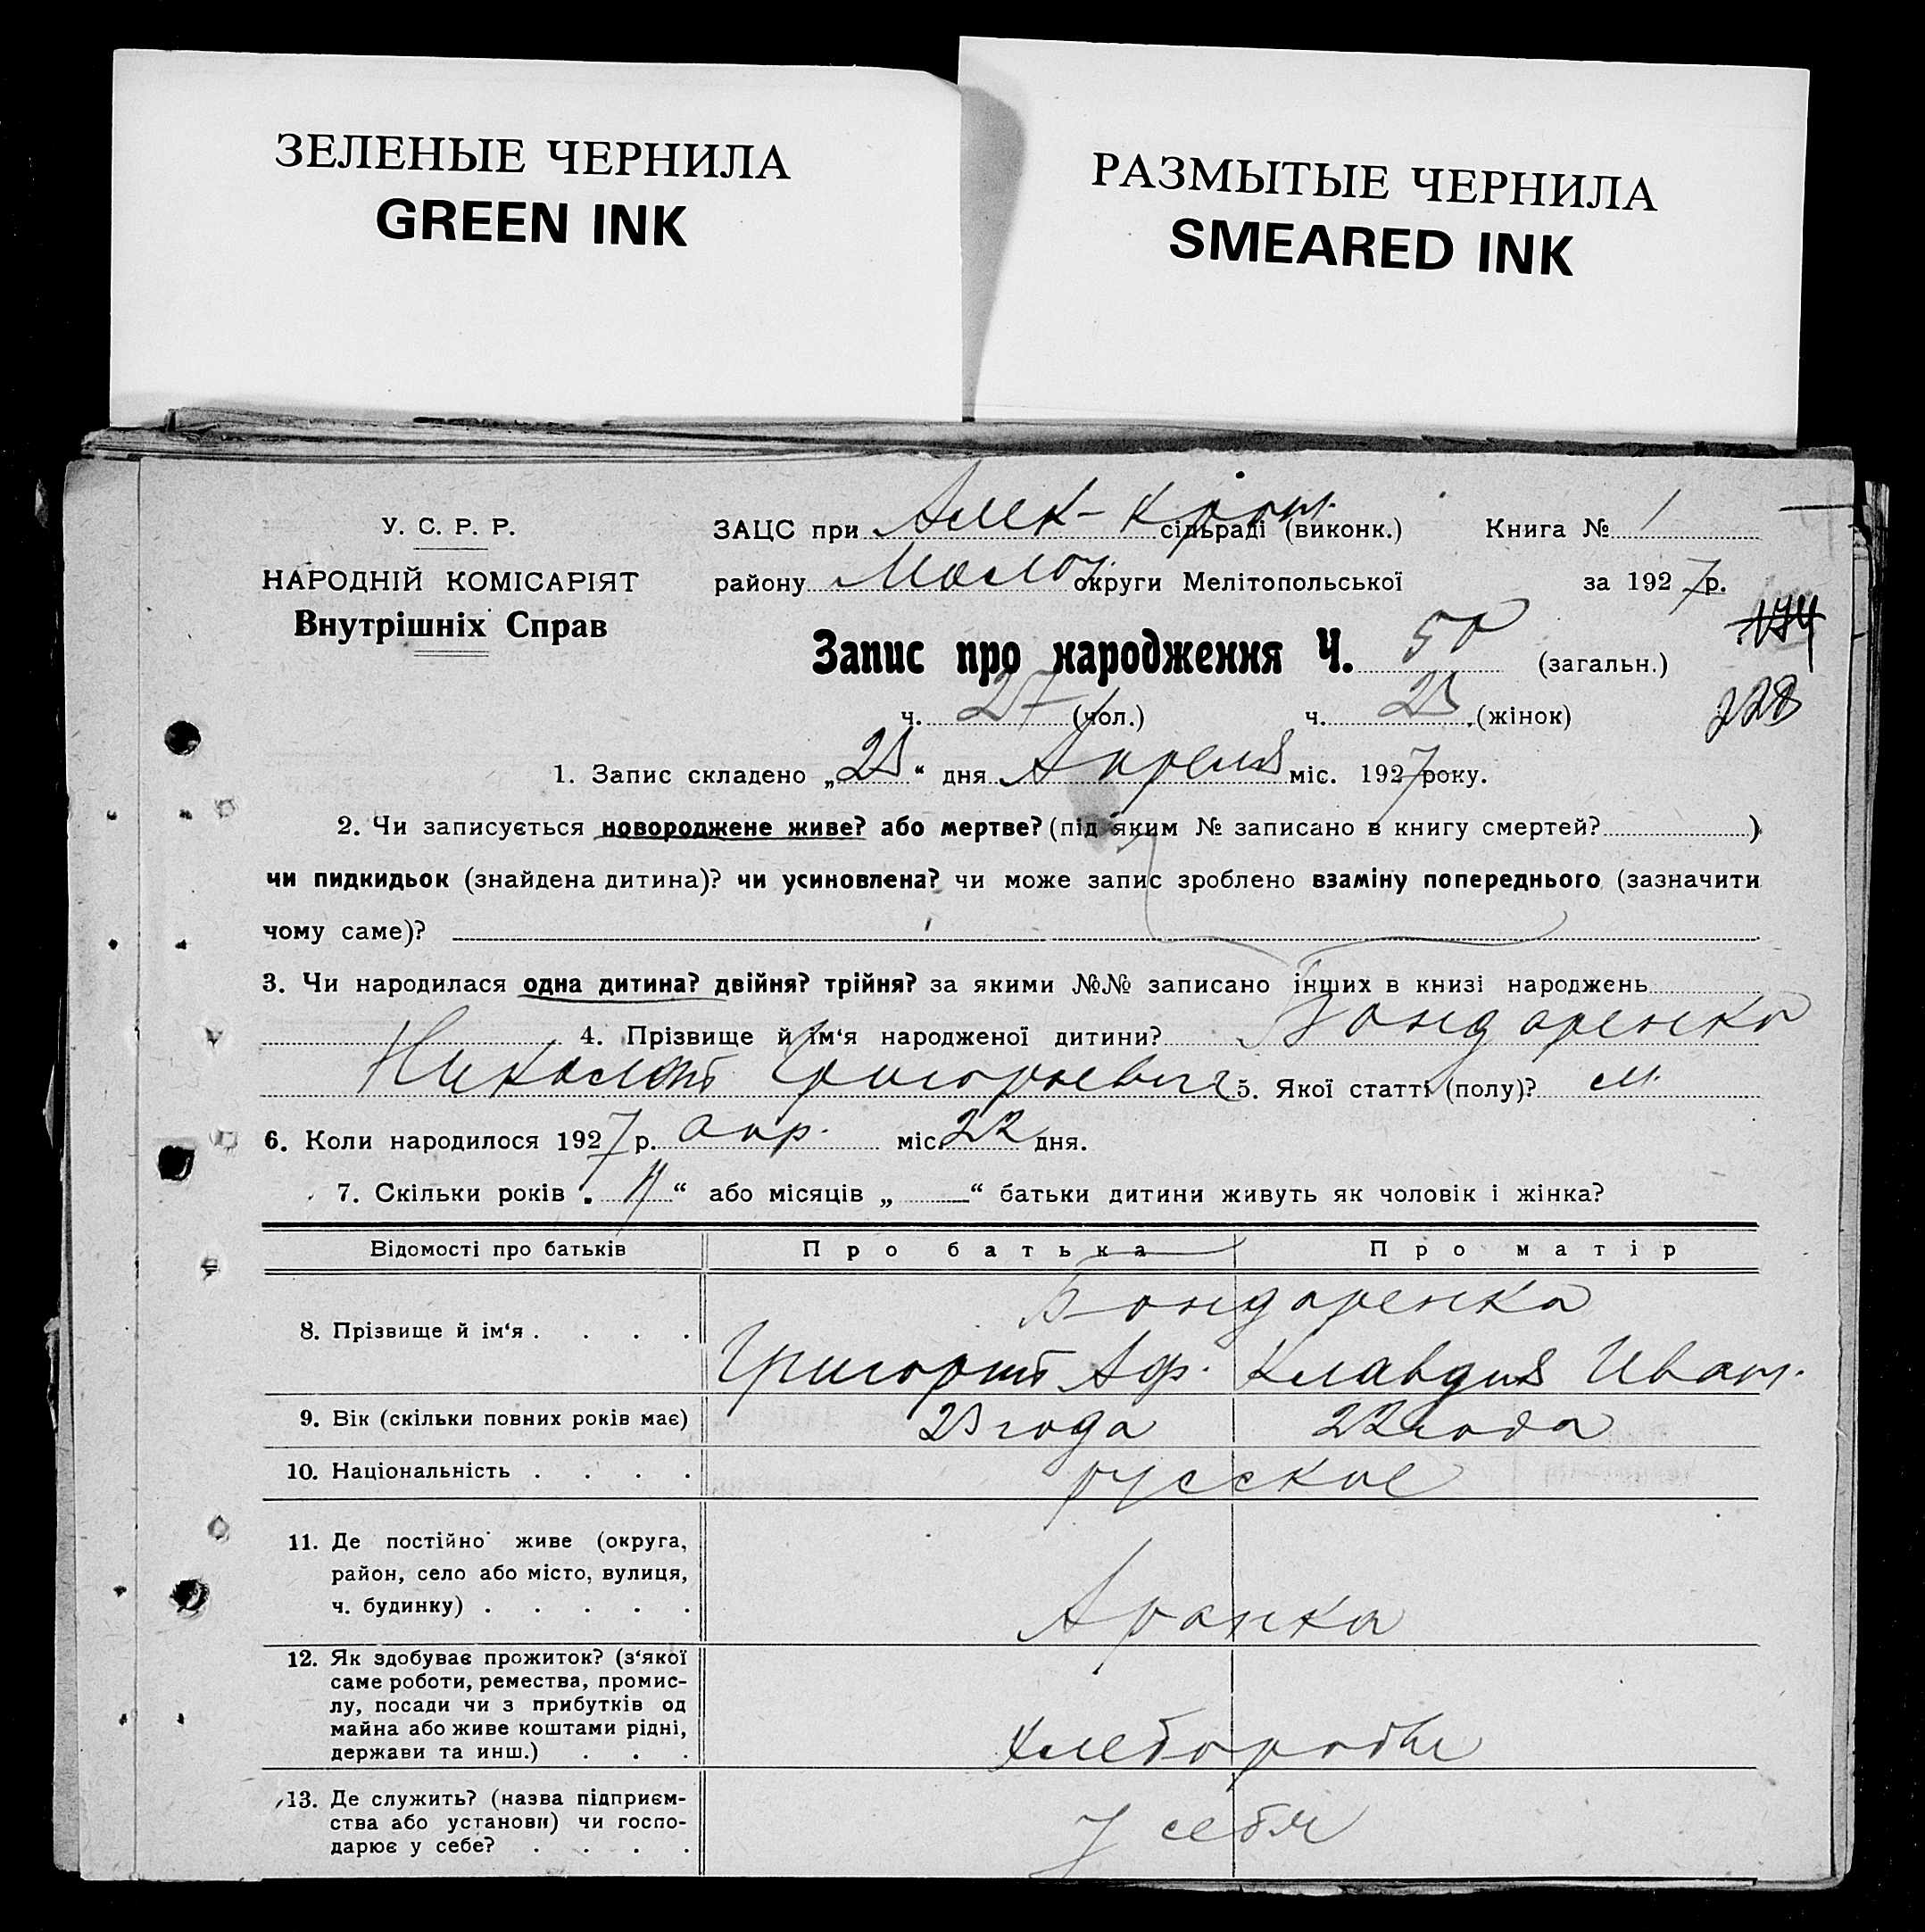 ЗЕЛЕНЫЕ ЧЕРНИЛА
GREEN INK
РАЗМЫТЫЕ ЧЕРНИЛА
SMEARED INK
У. С. Р. Р.
НАРОДНІЙ КОМІСАРІЯТ
Внутрішніх Справ
ЗАЦС при Алек- сільраді (виконк.) Книга № 1
району округи Мелітопольської за 1927 р.
Запис про народження Ч. 50 (загальн.)
174
228
ч. 27 (чол.) ч. 23 (жінок)
1. Запис складено „23“ дня Апреля міс. 1927 року.
2. Чи записується новороджене живе? або мертве? (під яким № записано в книгу смертей? )
чи пидкидьок (знайдена дитина)? чи усиновлена? чи може запис зроблено взаміну попереднього (зазначити
чому саме)?
3. Чи народилася одна дитина? двійня? трійня? за якими №№ записано інших в книзі народжень
4. Прізвище й ім‘я народженої дитини? Бондаренко
Николай Григорьевич 5. Якої статті (полу)? м.
6. Коли народилося 1927 р. апр. міс. 22 дня.
7. Скільки років „ “ або місяців „ — “ батьки дитини живуть як чоловік і жінка?
Відомості про батьків Про батька Про матір
8. Прізвище й ім‘я . . . . Бондаренко
Григорий Аф. Клавдия Иван.
9. Вік (скільки повних років має) 23 года 22 года
10. Національність . . . . русские
11. Де постійно живе (округа,
район, село або місто, вулиця,
ч. будинку) . . . . .
12. Як здобуває прожиток? (з‘якої
саме роботи, ремества, промис-
лу, посади чи з прибутків од
майна або живе коштами рідні,
держави та инш.) . . . хлебороби
13. Де служить? (назва підприєм-
ства або установи) чи госпо-
дарює у себе? . . . . У себя